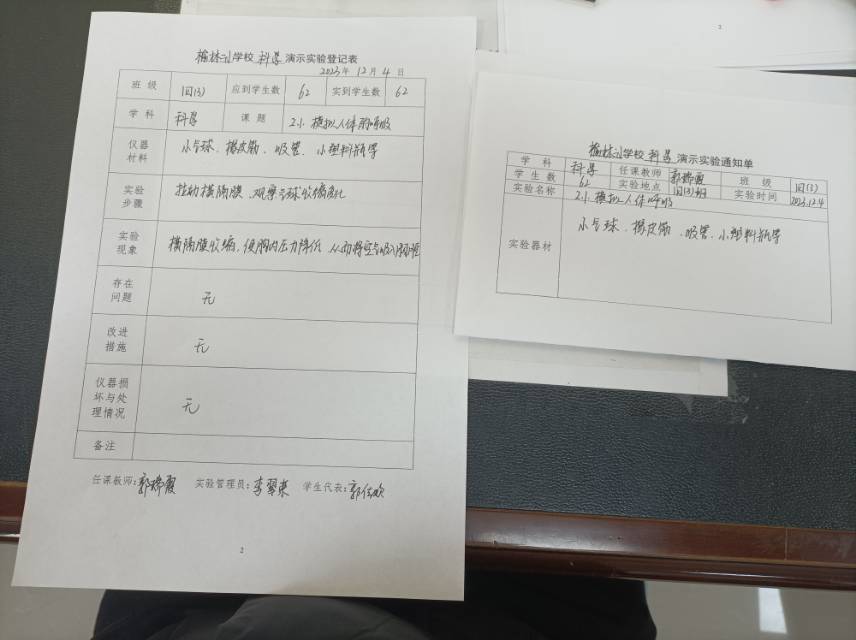 榆林小学校科学演示实验登记表
2023年12月4日
班级 四(3) 应到学生数 62 实到学生数 62
学科 科学 课题 2.1 模拟人体的呼吸
仪器材料 小气球、橡皮筋、吸管、小塑料瓶等
实验步骤 拉动横隔膜,观察气球收缩变化
实验现象 横隔膜收缩,使胸内压力降低 从而将空气吸入肺
存在问题 无
改进措施 无
仪器损坏与处理情况 无
备注
任课教师: 实验管理员: 学生代表:
2
榆林小学校科学演示实验通知单
学科 科学 任课教师 班级 四(3)
学生数 62 实验地点 四(3)班 实验时间 2023.12.4
实验名称 2.1 模拟人体呼吸
实验器材 小气球、橡皮筋、吸管、小塑料瓶等
2